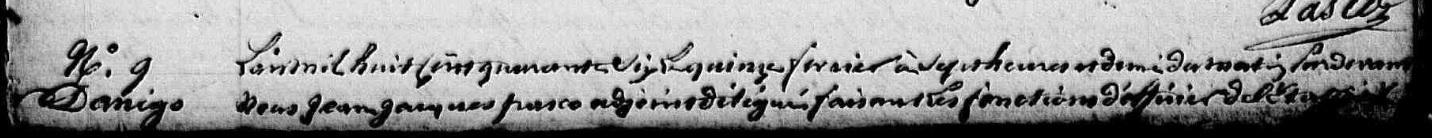 N.º 9
Danigo
L'an mil huit cent quarante six le quinze fevrier à sept heures et demi du matin Pardevant
Nous Jean Jacques pasco adjoint délégué faisant les fonctions d'officier de l'état